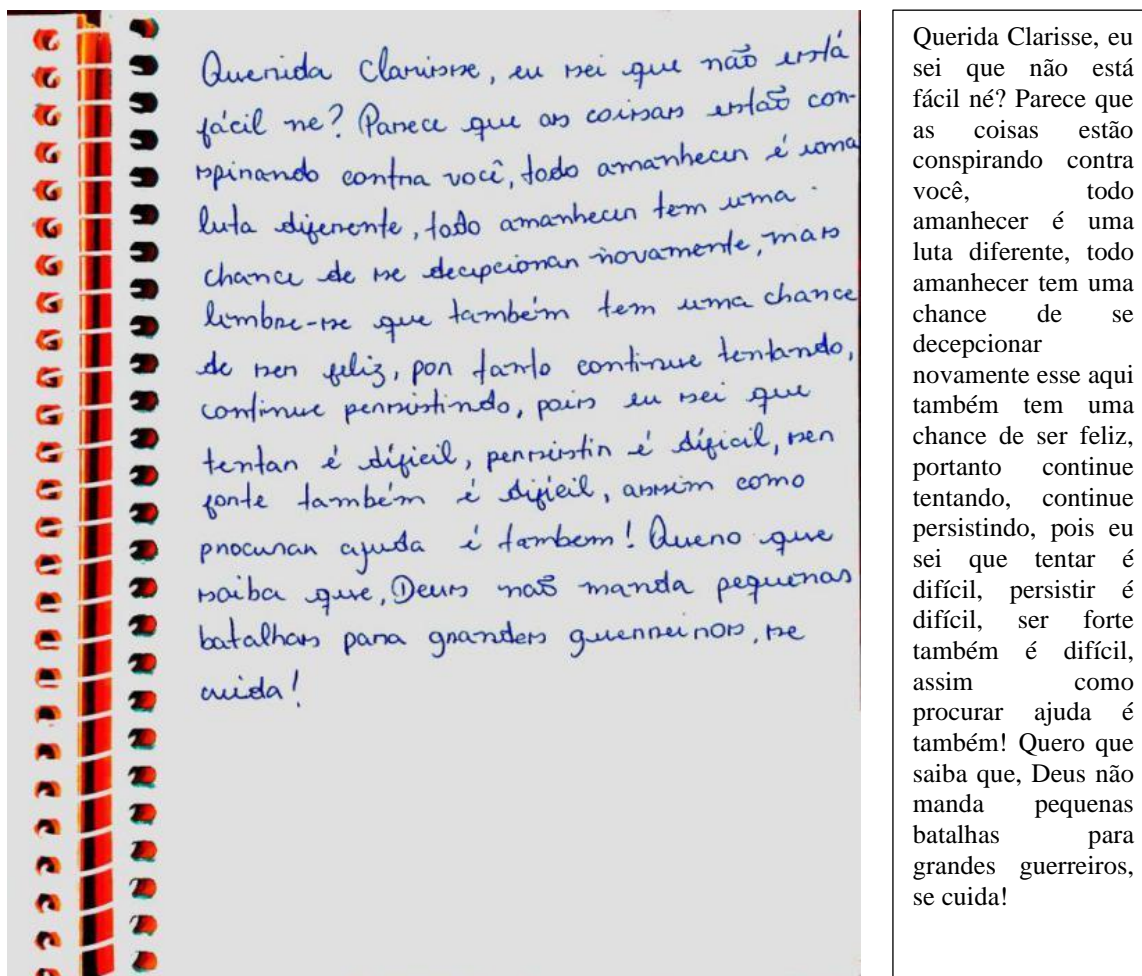 Querida Clarisse, eu sei que não está
fácil ne? Parece que as coisas estão con-
spirando contra você, todo amanhecer é uma
luta diferente, todo amanhecer tem uma
chance de se decepcionar novamente, mas
lembre-se que também tem uma chance
de ser feliz, por tanto continue tentando,
continue persistindo, pois eu sei que
tentar é díficil, persistir é díficil, ser
forte também é díficil, assim como
procurar ajuda é tambem! Quero que
saiba que, Deus não manda pequenas
batalhas para grandes guerreiros, se
cuida!
Querida Clarisse, eu
sei que não está
fácil né? Parece que
as coisas estão
conspirando contra
você, todo
amanhecer é uma
luta diferente, todo
amanhecer tem uma
chance de se
decepcionar
novamente esse aqui
também tem uma
chance de ser feliz,
portanto continue
tentando, continue
persistindo, pois eu
sei que tentar é
difícil, persistir é
difícil, ser forte
também é difícil,
assim como
procurar ajuda é
também! Quero que
saiba que, Deus não
manda pequenas
batalhas para
grandes guerreiros,
se cuida!